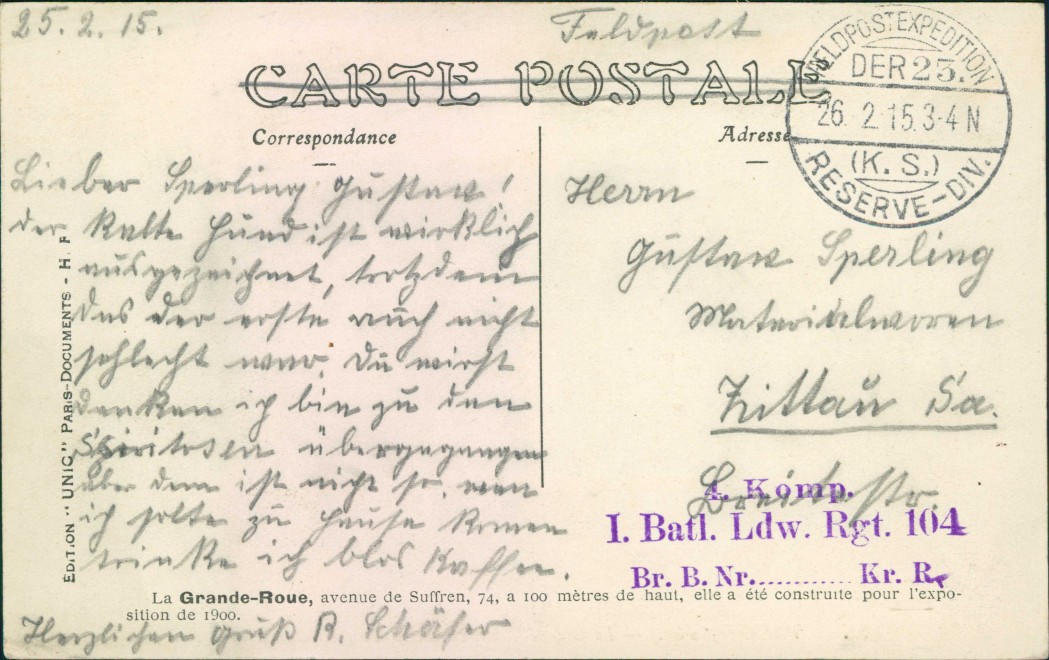 25. 2. 15.
Feldpost
CARTE POSTALE
Correspondance
Adresse
FELDPOSTEXPEDITION
DER 23.
26. 2 15. 3-4 N
(K. S.)
RESERVE-DIV.
Lieber Sperling Gustav!
der Kalte Hund ist wirklich
ausgezeichnet, trotzdem
das der erste auch nicht
schlecht war. Du wirst
denken ich bin zu den
Spiritosen übergegangen
aber dem ist nicht so, wen
ich solte zu Hause komen
trinke ich blos Kaffee.
Herzlichen Gruß R. Schäfer
Herrn
Gustav Sperling
Materialwaren
Zittau Sa.
Breitestr.
4. Komp.
I. Batl. Ldw. Rgt. 104
Br. B. Nr............ Kr. R.
EDITION "UNIC" PARIS-DOCUMENTS - H.
La Grande-Roue, avenue de Suffren, 74, a 100 mètres de haut, elle a été construite pour l'expo-
sition de 1900.